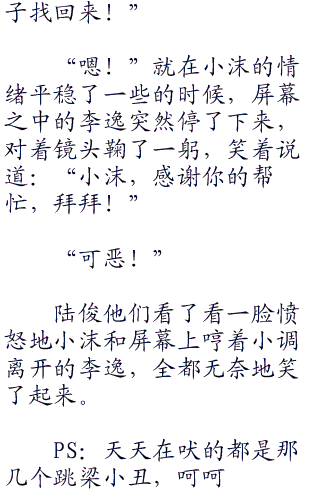 子找回来！”
“嗯！”就在小沫的情
绪平稳了一些的时候，屏幕
之中的李逸突然停了下来，
对着镜头鞠了一躬，笑着说
道：“小沫，感谢你的帮
忙，拜拜！”
“可恶！”
陆俊他们看了看一脸愤
怒地小沫和屏幕上哼着小调
离开的李逸，全都无奈地笑
了起来。
PS：天天在吠的都是那
几个跳梁小丑，呵呵